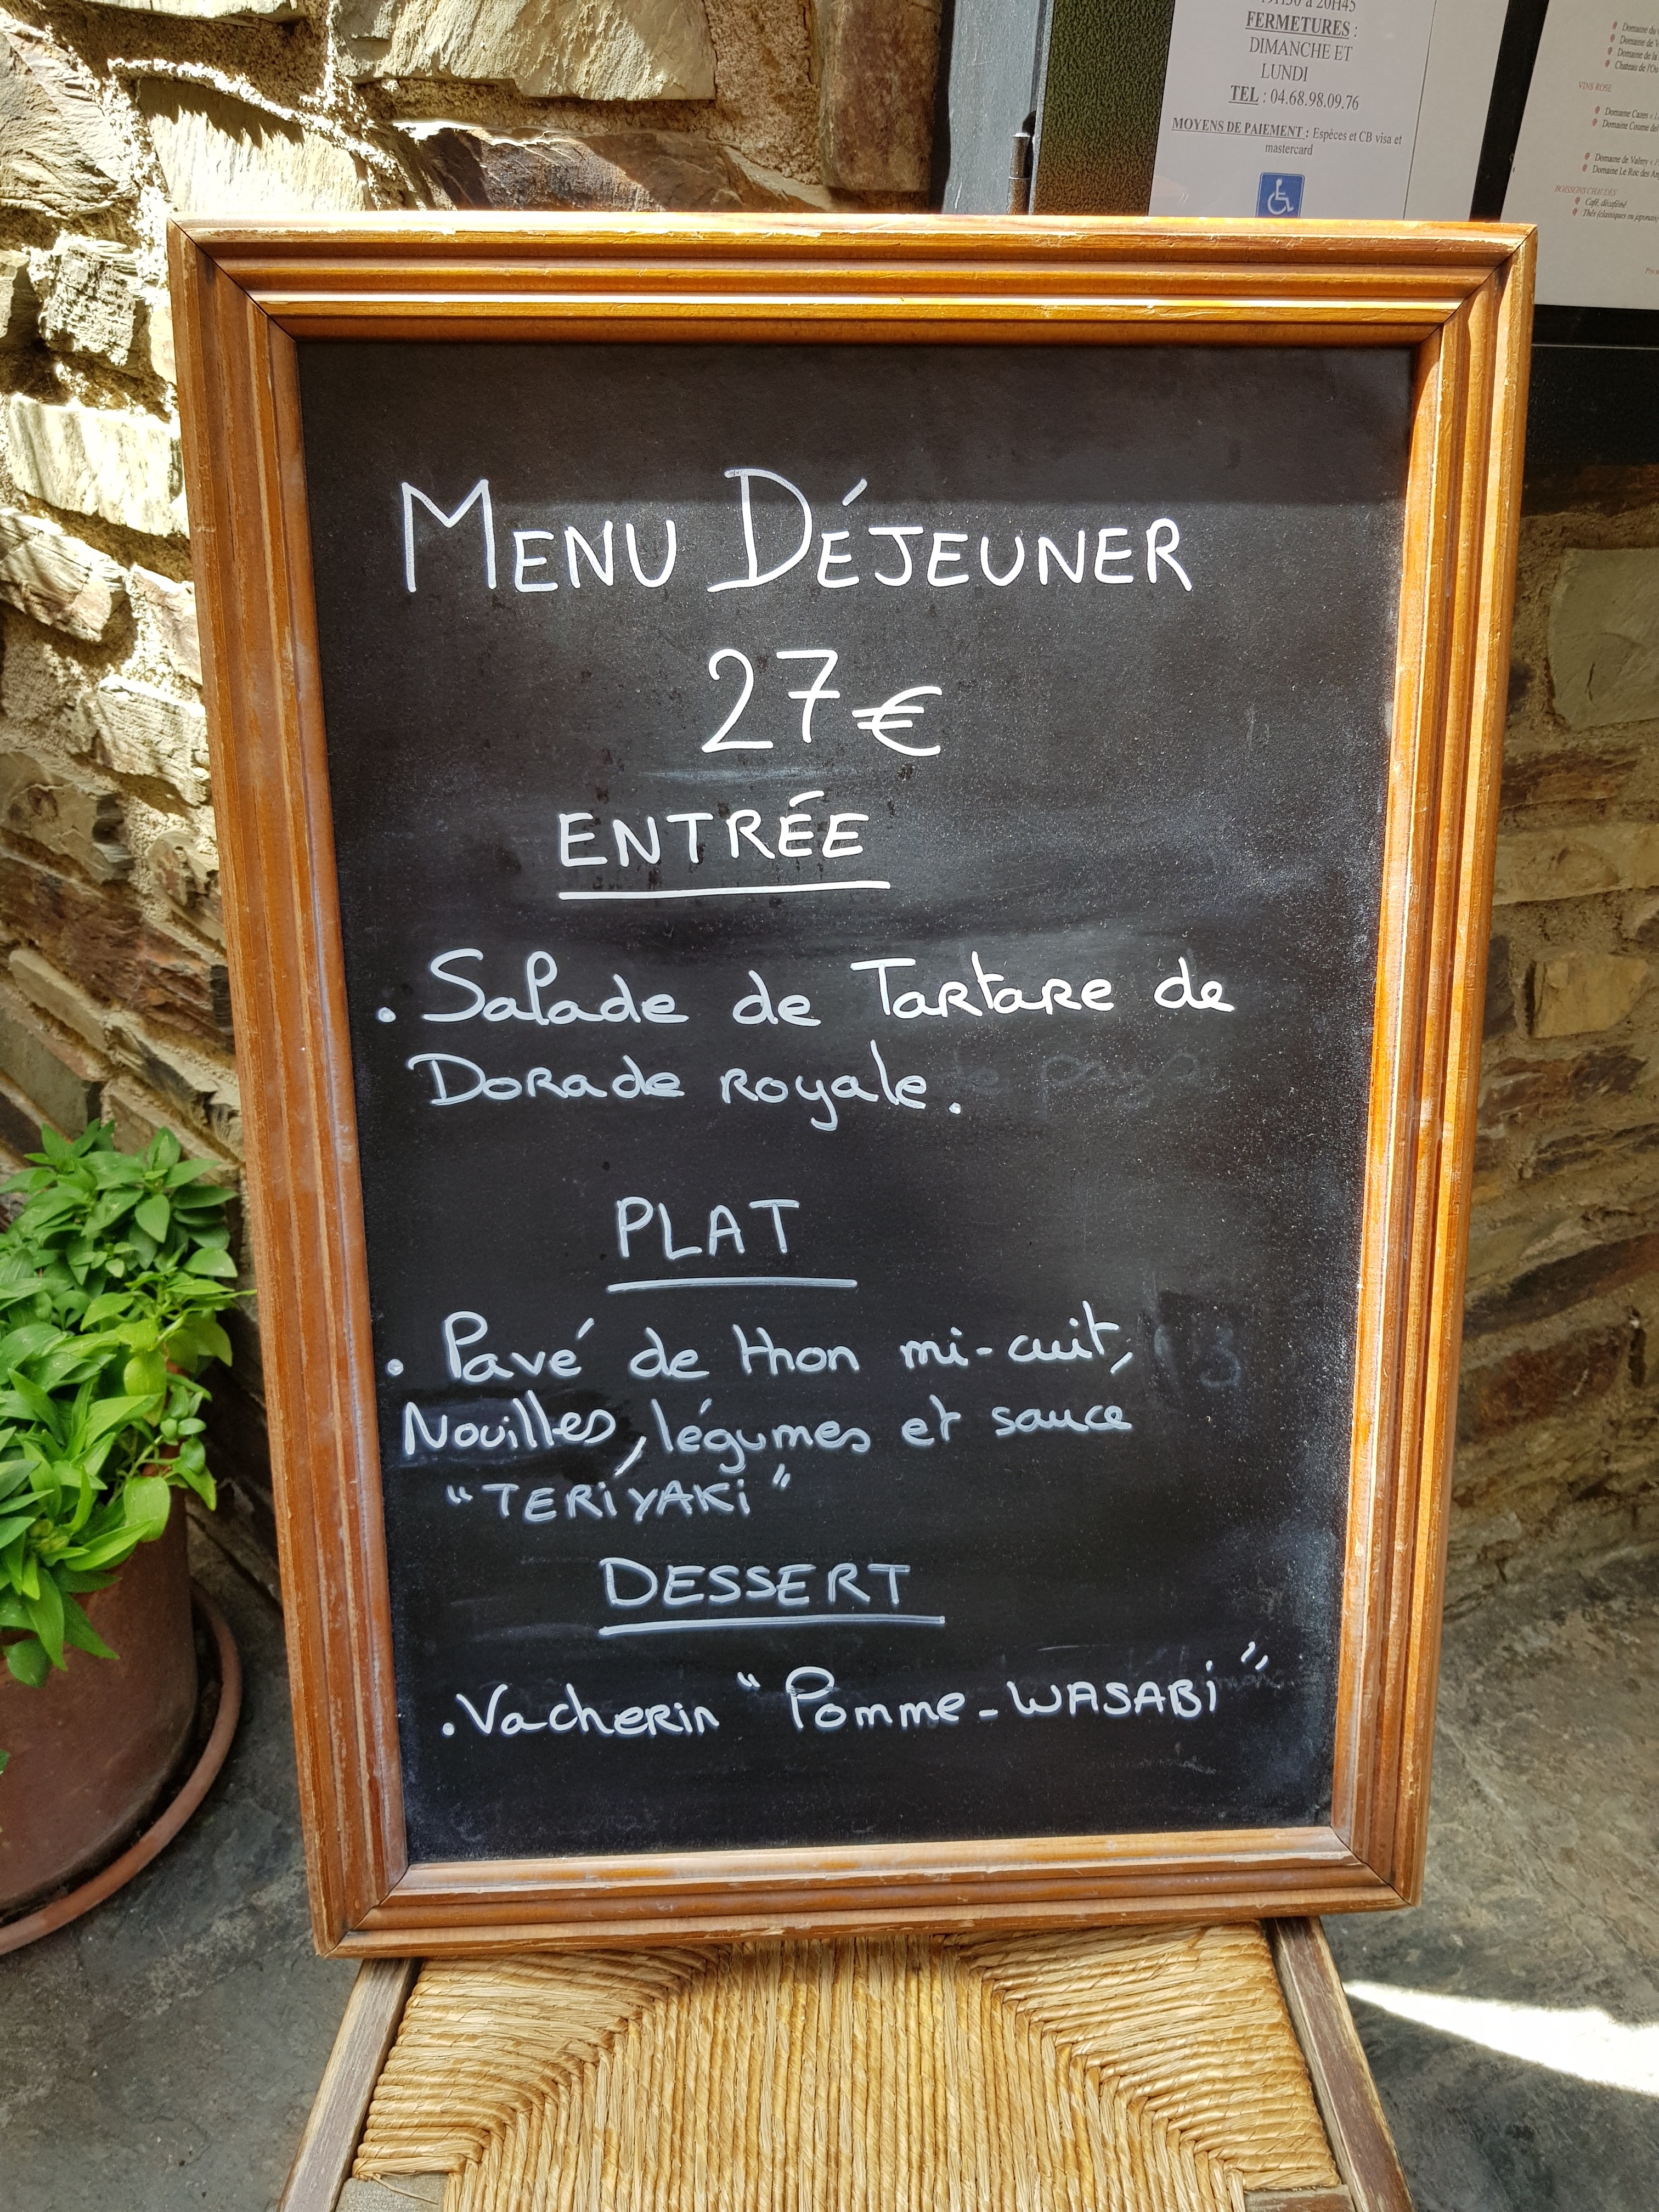 19H30 à 20H45
FERMETURES :
DIMANCHE ET
LUNDI
TEL : 04.68.98.09.76
MOYENS DE PAIEMENT : Espèces et CB visa et
mastercard
Domaine du
Domaine de V
Domaine de la
Chateau de l'Ou
VINS ROSE
Domaine Cazes
Domaine Coume del
Domaine de Valmy
Domaine Le Roc des An
BOISSONS CHAUDES
Café, décaféiné
Thés (classiques ou japonais)
MENU DÉJEUNER
27€
ENTRÉE
. Salade de Tartare de
Dorade royale.
PLAT
. Pavé de thon mi-cuit,
Nouilles, légumes et sauce
"TERIYAKI"
DESSERT
. Vacherin "Pomme-WASABI"